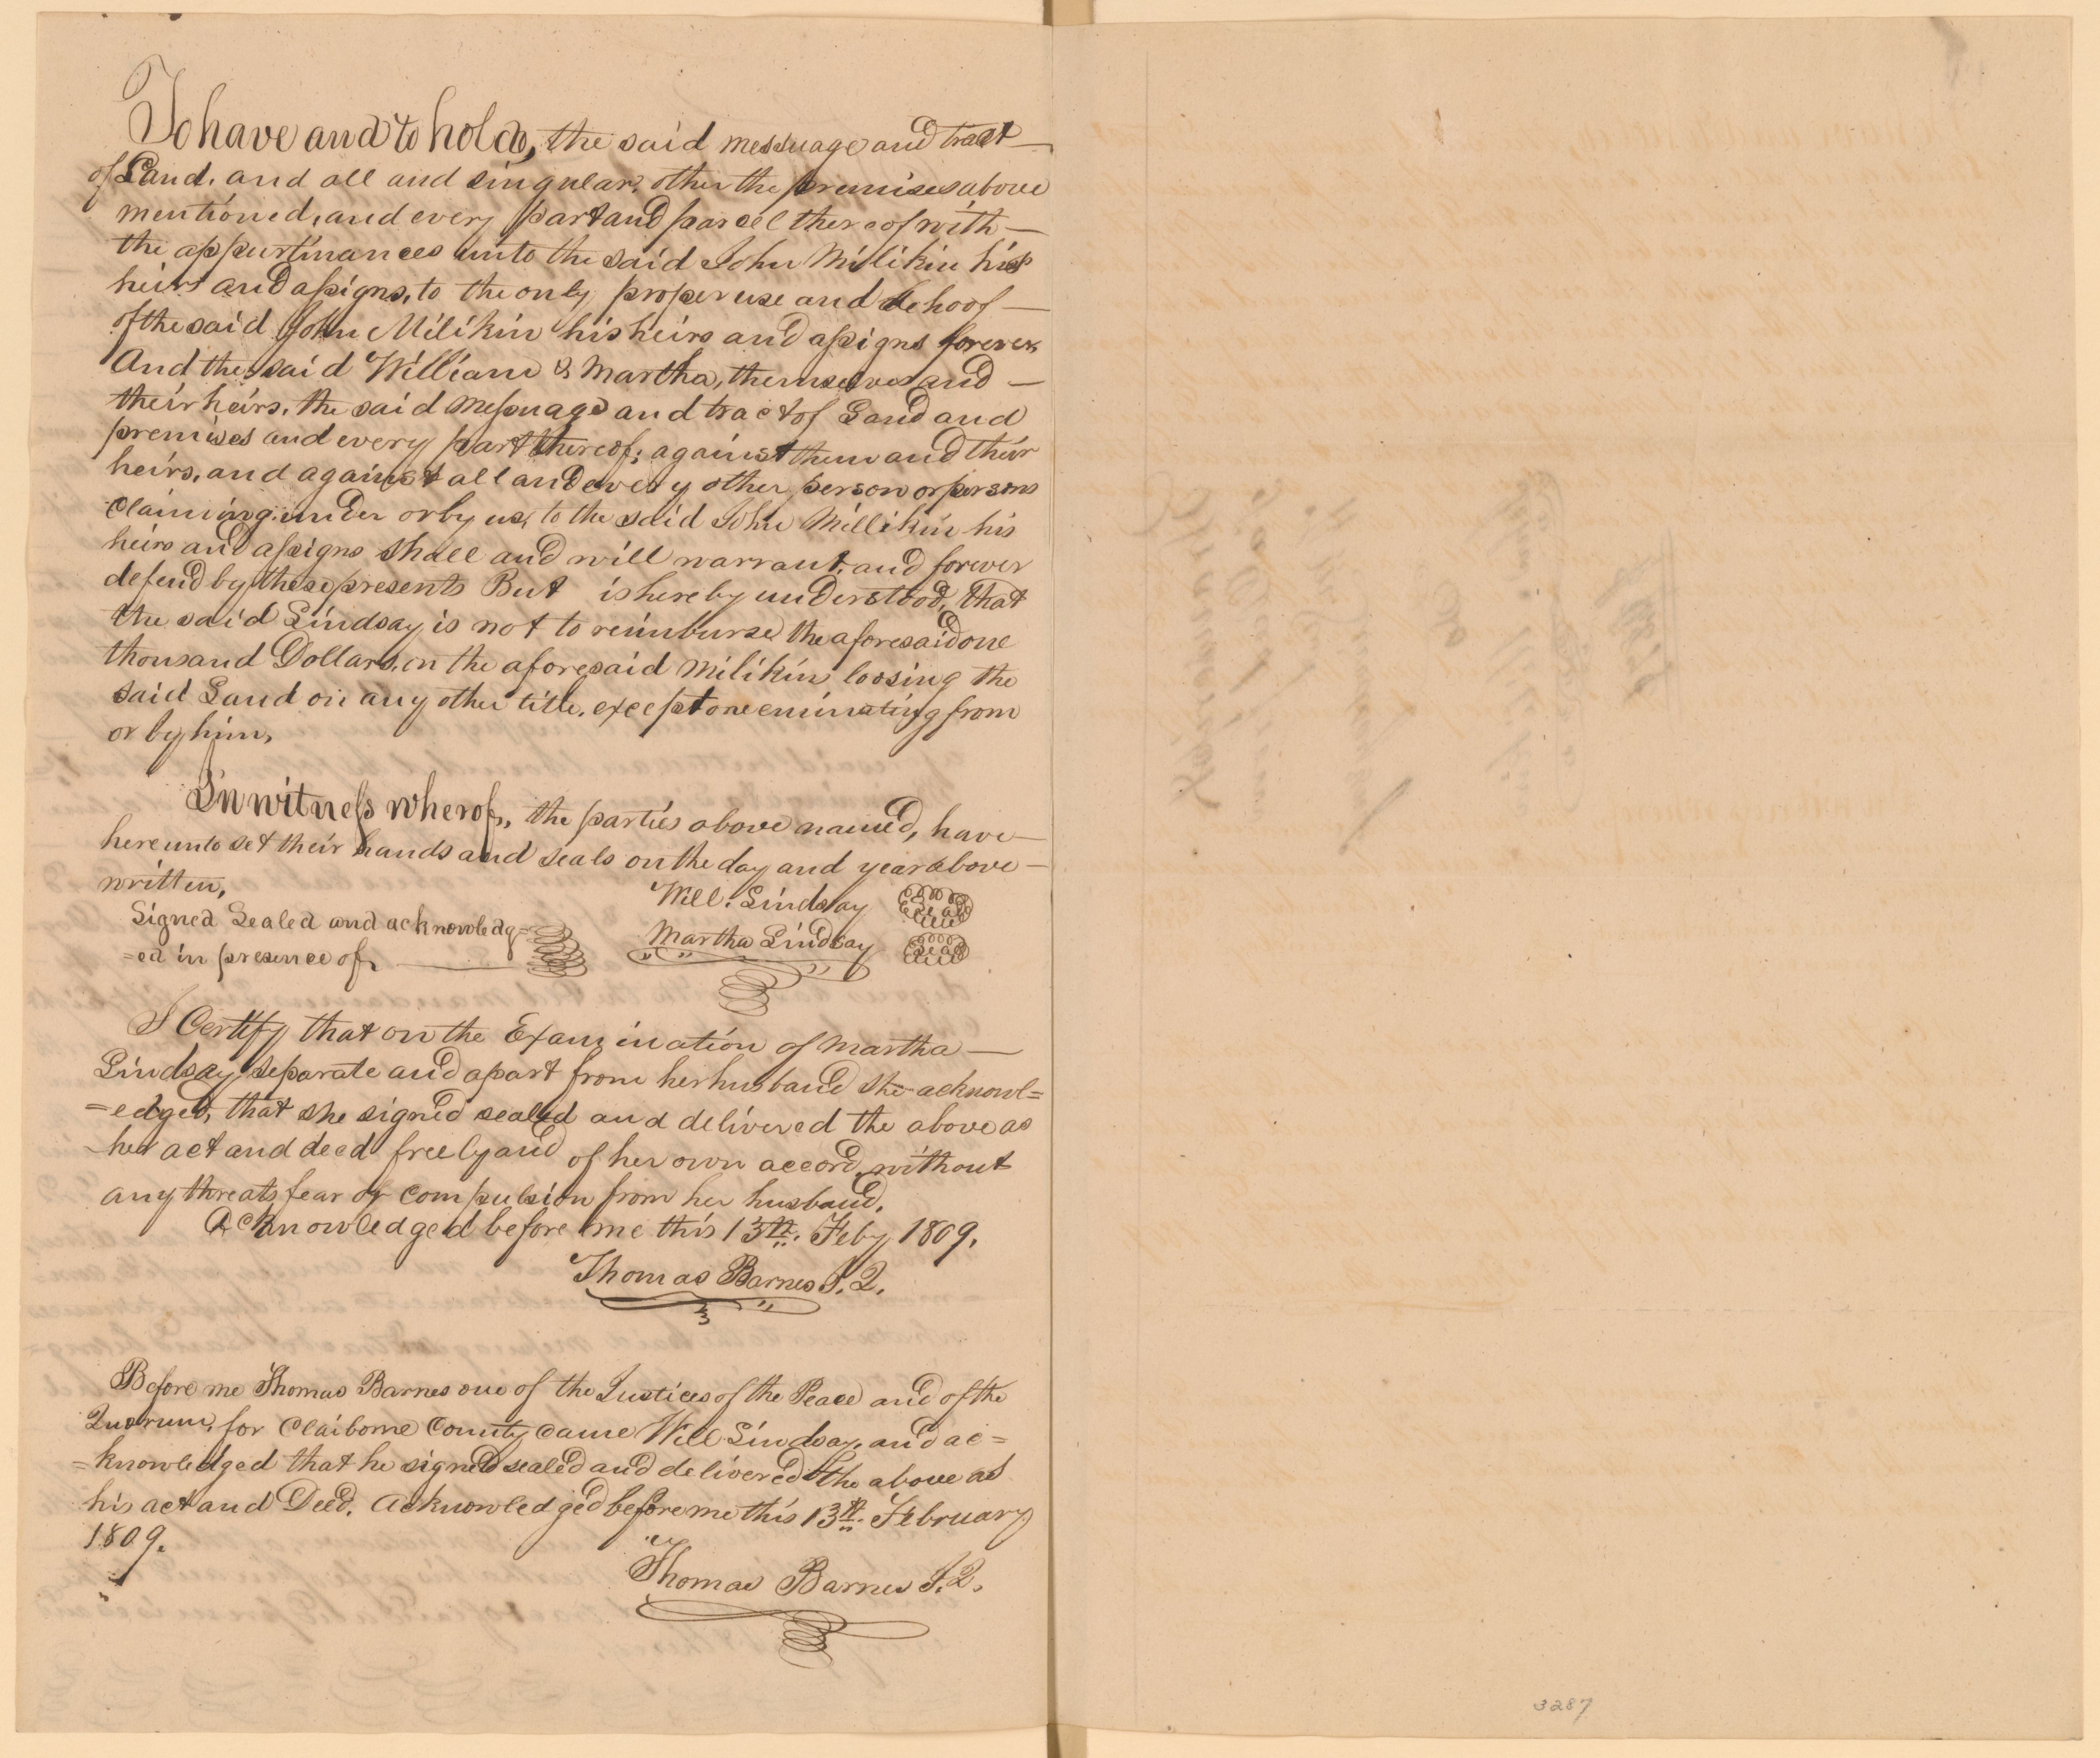 To have and to hold, the said messuage and tract
of Land, and all and singular, other the premises above
mentioned, and every part and parcel thereof with
the appurtinances unto the said John Milikin his
heirs and assigns, to the only proper use and behoof
of the said John Milikin his heirs and assigns forever,
And the said William & Martha, themselves and
their heirs, the said Messuage and tract of Land and
premises and every part thereof; against them and their
heirs, and against all and every other person or persons
Claiming under or by us, to the said John Millikin his
heirs and assigns shall and will warrant and forever
defend by these presents But is hereby understood, that
the said Lindsay is not to reimburse the aforesaid one
thousand Dollars, on the aforesaid Milikin loosing the
said Land on any other title, except one eminating from
or by him,
In witness wherof, the parties above named, have
hereunto set their hands and seals on the day and year above
written,
Will. Lindsay Seal
Signed Sealed and acknowledg=
=ed in presence of,
Martha Lindsay Seal
I Certify that on the Examination of Martha
Lindsay separate and apart from her husband she acknowl=
=edged, that she signed sealed and delivered the above as
her act and deed freely and of her own accord, without
any threats fear or compulsion from her husband.
Acknowledged before me this 13th. Feby 1809.
Thomas Barnes J. Q.
Before me Thomas Barnes one of the Justices of the Peace and of the
Quorum, for Claiborne County came Will Lindsay, and ac=
=knowledged that he signed sealed and delivered the above as
his act and Deed. Acknowledged before me this 13th. February
1809.
Thomas Barnes J. Q.
3287